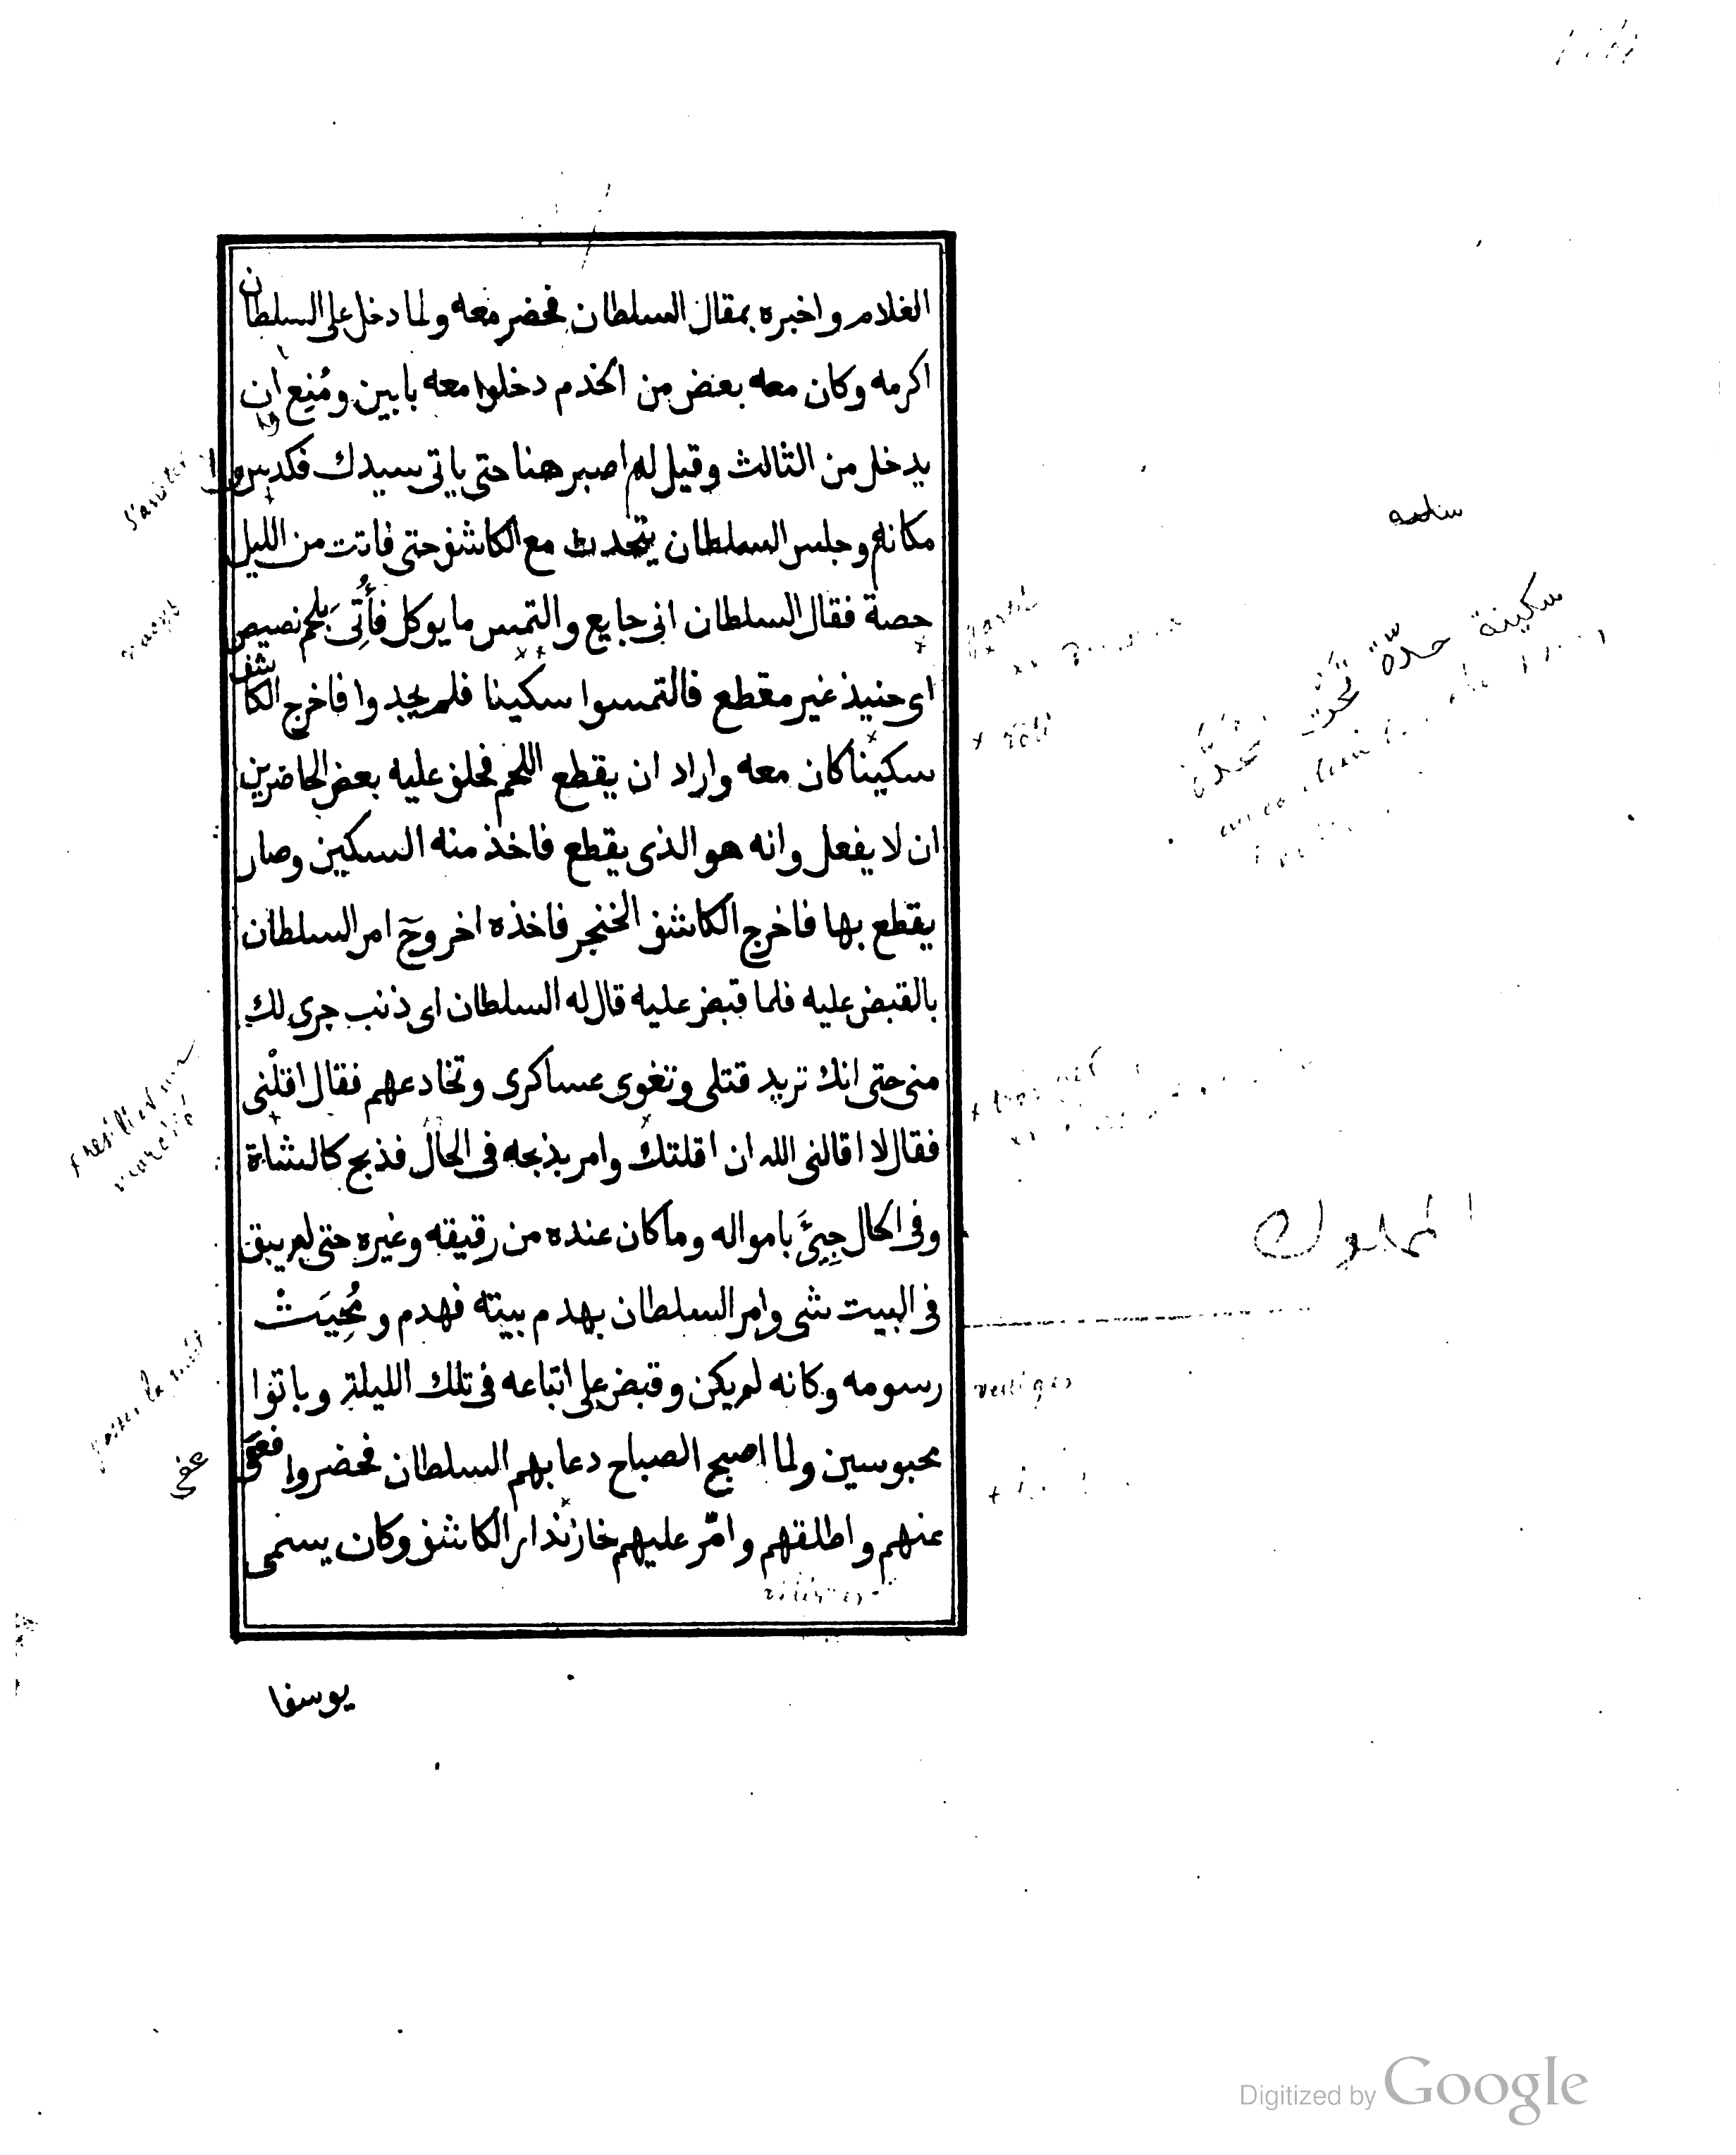 الغلام واخبره بمقال السلطان فحضر معه ولما دخل على السلطان
اكرمه وكان معه بعض من الخدم دخلوا معه بابين ومُنِع ان
يدخل من الثالث وقيل لهم اصبر هنا حتى ياتى سيدك
مكانهم وجلس السلطان يتحدث مع الكاشف حتى فاتت من الليل
حصة فقال السلطان انى جايع والتمس ما يوكل فأُتِىَ بلحم نصيص
اى حنيذ غير مقطع فالتمسوا سكينا فلم يجدوا فاخرج الكاشف
سكينا كان معه واراد ان يقطع اللحم فحلف عليه بعض الحاضرين
ان لا يفعل وانه هو الذى يقطع فاخذ منه السكين وصار
يقطع بها فاخرج الكاشف الخنجر فاخذه اخر وحَ امر السلطان
بالقبض عليه فلما قبض عليه قال له السلطان اى ذنب جرى لك
منى حتى انك تريد قتلى وتغوى عساكرى وتخادعهم فقال اقلْنى
فقال لا اقالنى الله ان اقلتك وامر بذبحه فى الحال فذبح كالشاة
وفى الحال جِيئَ بامواله وما كان عنده من رقيقه وغيره حتى لم يبق
فى البيت شى وامر السلطان بهدم بيته فهدم ومُحِيَتْ
رسومه وكانه لم يكن وقبض على اتباعه فى تلك الليلة وباتوا
محبوسين ولما اصبح الصباح دعا بهم السلطان فحضروا فعفى
عنهم واطلقهم وامّر عليهم خازندار الكاشف وكان يسمى
يوسفا
سكينة
rôti
vestiges
عفى
Digitized by Google